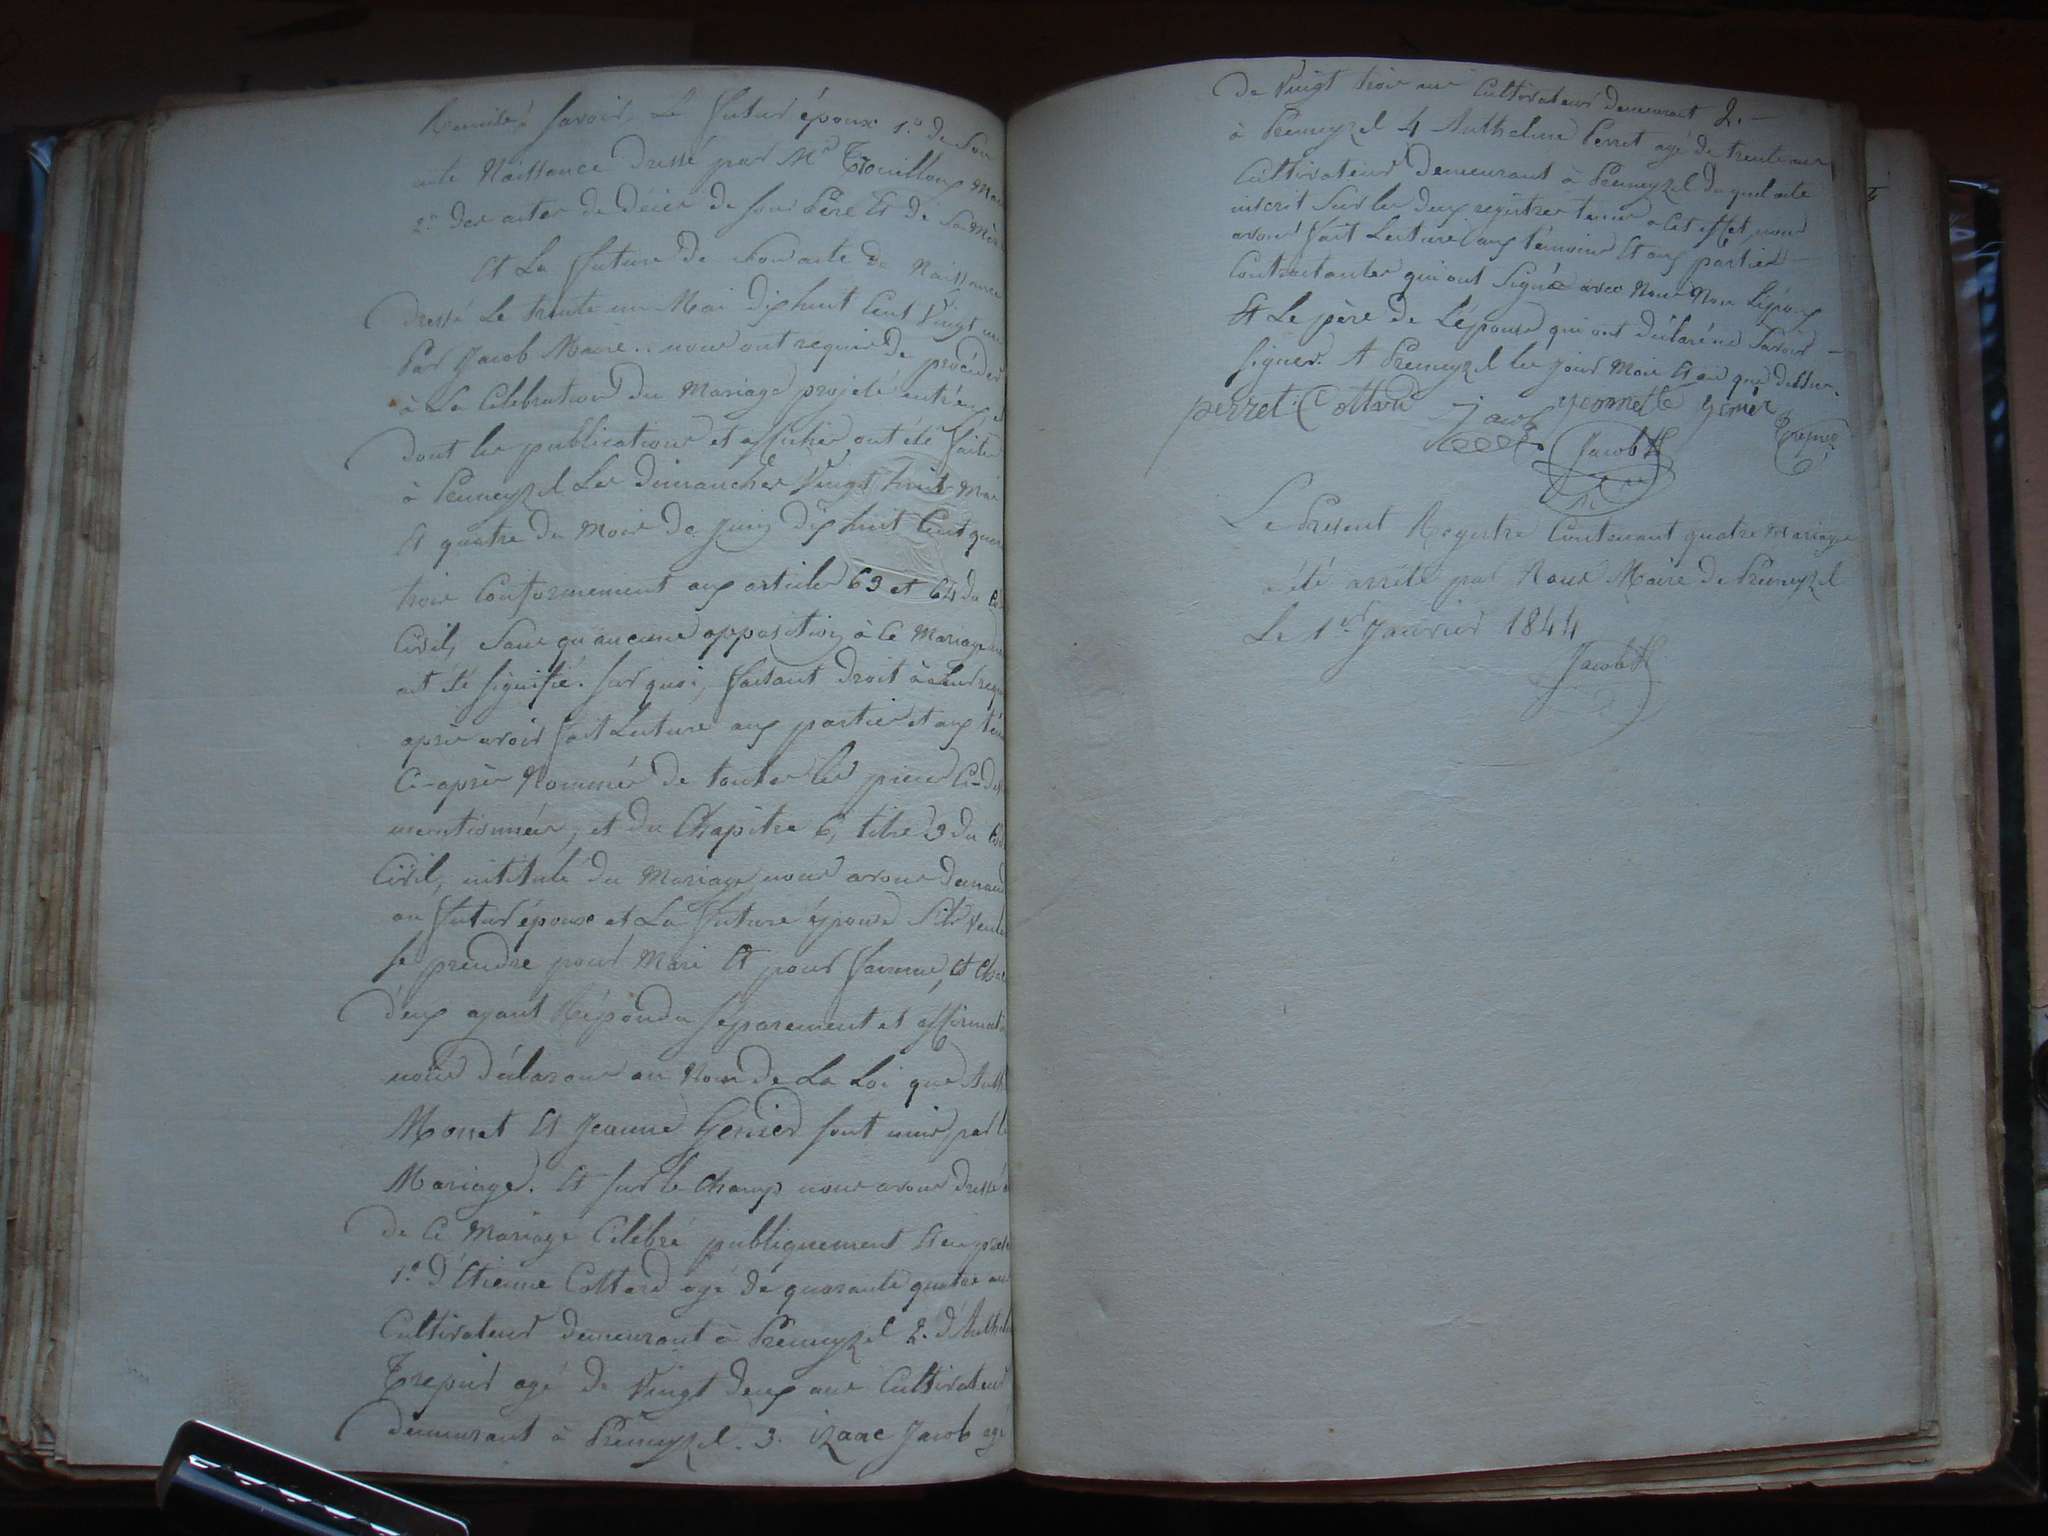 Remise, Savoir, Le futur époux 1.o de Son
acte Naissance Dressé par Mr Trouilloux Maire
2.o des actes de Décès de son Père Et de Sa Mère
Et La future de son acte de Naissance
dressé Le trente un Mai Dix huit Cent Vingt un
Par Jacob Maire.. nous ont requis de procéder
à La Célébration du Mariage projeté entr'eux et
dont les publications et affiches ont été faites
à Premeyzel Les dimanches Vingt huit Mai
Et quatre du Mois de Juin Dix huit Cent quar
trois Conformement aux articles 63 et 64 du Co
Civil, Sans qu'aucune opposition à Ce Mariage
ait été signifié. Sur quoi, faisant droit à Leur requi
après avoir fait Lecture aux parties et aux tém
Ci-après Nommés de toutes les pièces Ci-des
mentionnées, et du Chapitre 6, titre 3 du Code
Civil, intitulé du Mariage nous avons demandé
au futur époux et La future épouse S'ils veulent
se prendre pour Mari Et pour femme, Et Chac
d'eux ayant Répondu séparement et affirmati
nous déclarons au Nom de La Loi que Anth
Monet Et Jeanne Genier sont unis par le
Mariage. Et sur le Champ nous avons dressé a
de Ce Mariage Célébré publiquement Et en prése
1.o d'Etienne Cottard agé de quarante quatre ans
Cultivateur demeurant à Premeyzel 2. d'Anthel
Trepier agé de Vingt deux ans Cultivateur
demeurant à Premeyzel. 3. izaac Jacob agé
de Vingt trois ans Cultivateur demeurant 2.-
à Premeyzel 4 Anthelme Perret agé de trente ans
Cultivateur Demeurant à Premeyzel Duquel acte
inscrit Sur les deux registres tenus à Cet effet, nous
avons fait Lecture aux témoins Et aux parties -
Contractantes qui ont Signé avec Nous Non L'époux
Et Le père de L'épouse qui ont déclaré ne Savoir -
signer. A Premeyzel les jour Mois Et an que dessus.
perret Cottard Jacob yennette genier
Jacob H Trepier
Le Present Registre Contenant quatre Mariages
a été arrêté par Nous Maire de Premeyzel
Le 1er Janvier 1844
Jacob H